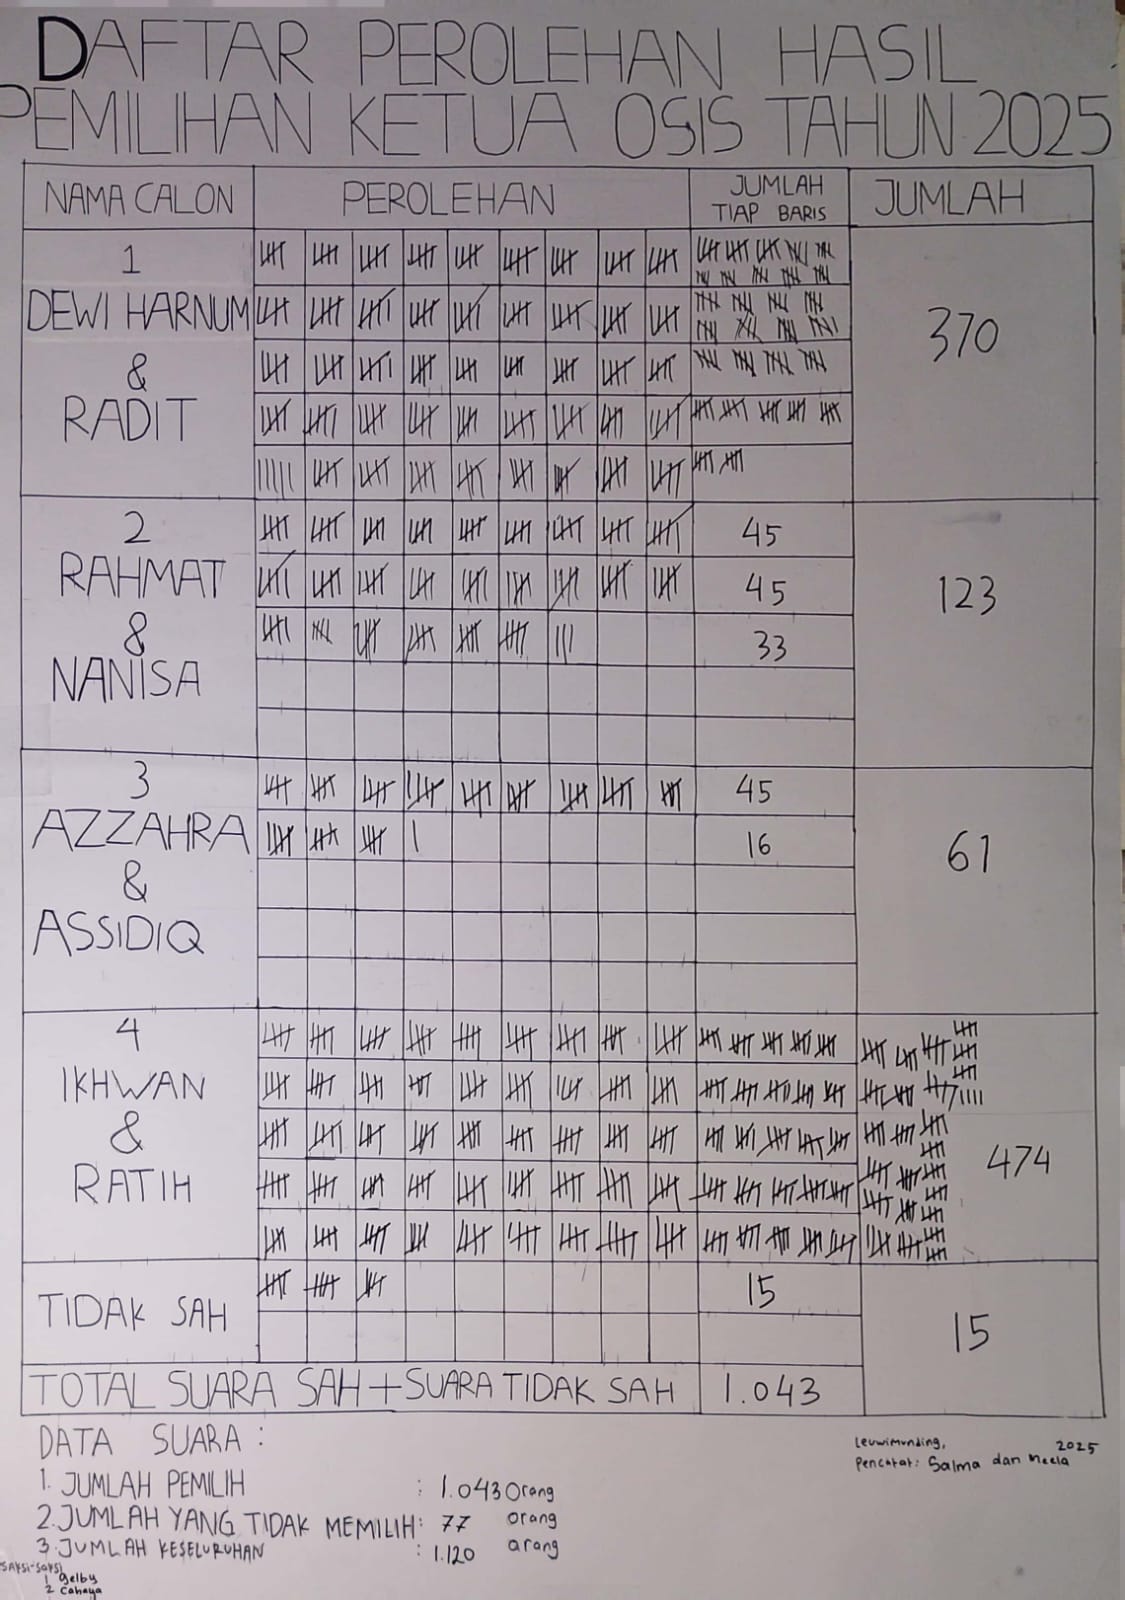 DAFTAR PEROLEHAN HASIL
PEMILIHAN KETUA OSIS TAHUN 2025
NAMA CALON PEROLEHAN JUMLAH TIAP BARIS JUMLAH
1
DEWI HARNUM
&
RADIT
370
2
RAHMAT
&
NANISA
45
45
33
123
3
AZZAHRA
&
ASSIDIQ
45
16
61
4
IKHWAN
&
RATIH
474
TIDAK SAH
15
15
TOTAL SUARA SAH + SUARA TIDAK SAH 1.043
DATA SUARA :
1. JUMLAH PEMILIH : 1.043 Orang
2. JUMLAH YANG TIDAK MEMILIH : 77 orang
3. JUMLAH KESELURUHAN : 1.120 arang
Leuwimunding, 2025
Pencatat: Salma dan Meela
SAKSI-SAKSI
1 gelby
2 Cahaya